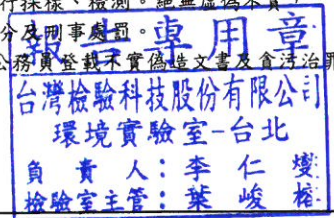 行採樣、檢測。絕無虛偽本實，
分及刑事處罰。
公務員登載不實偽造文書及貪污治罪
報告專用章
台灣檢驗科技股份有限公司
環境實驗室-台北
負責人：李仁燮
檢驗室主管：葉峻榕